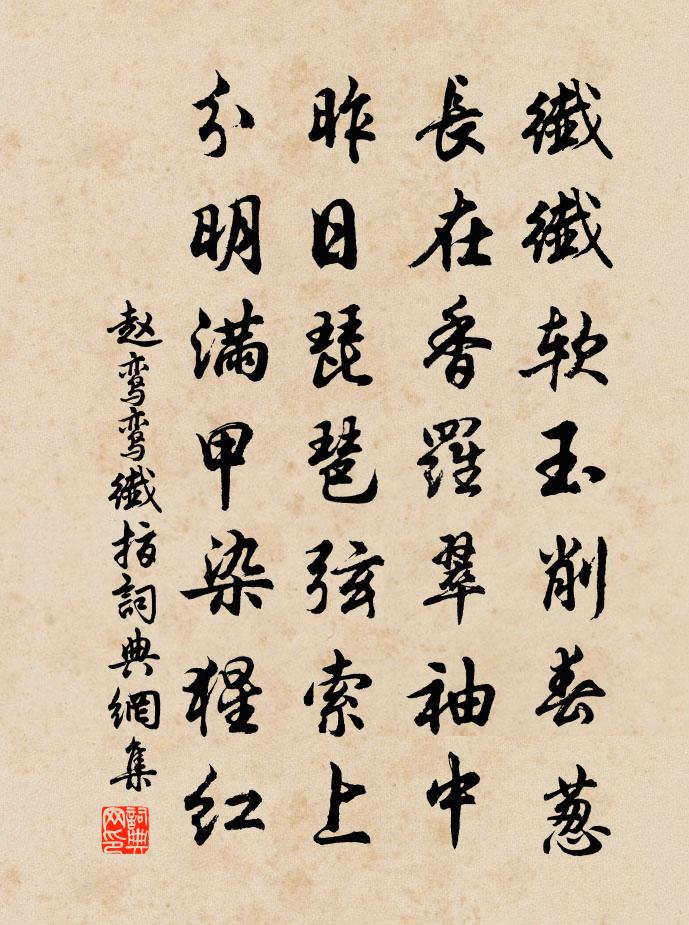 纖纖軟玉削春葱
長在香羅翠袖中
昨日琵琶弦索上
分明滿甲染猩红
赵鸾鸾纖指詞典網集
詞典网印